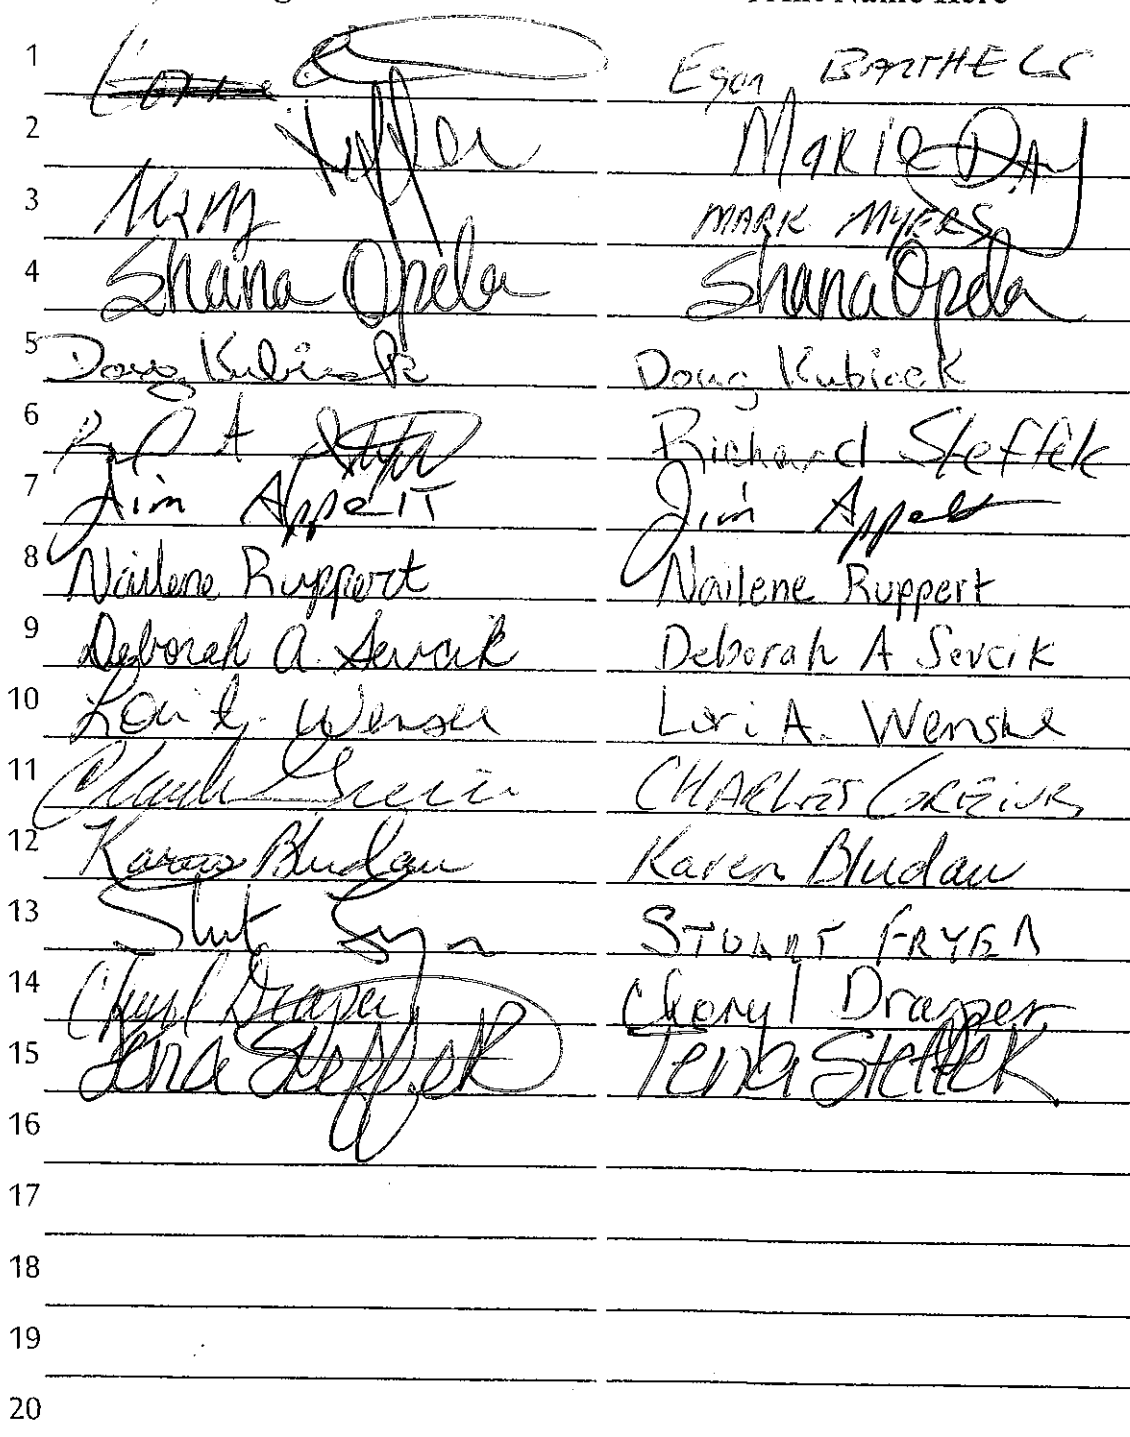 Print Name Here
1 Egon BARTHELS
2 MARIE DAY
3 MARK MYERS
4 Shana Opela Shana Opela
5 Doug Kubicek Doug Kubicek
6 Richard Steffek
7 Jim Appelt Jim Appelt
8 Nailene Ruppert Nailene Ruppert
9 Deborah A. Sevcik Deborah A Sevcik
10 Lori A. Wenske Lori A. Wenske
11 CHARLES GREINER
12 Karen Bludau Karen Bludau
13 STUART FRYER
14 Cheryl Draper Cheryl Draper
15 Tena Steffek Tena Steffek
16
17
18
19
20